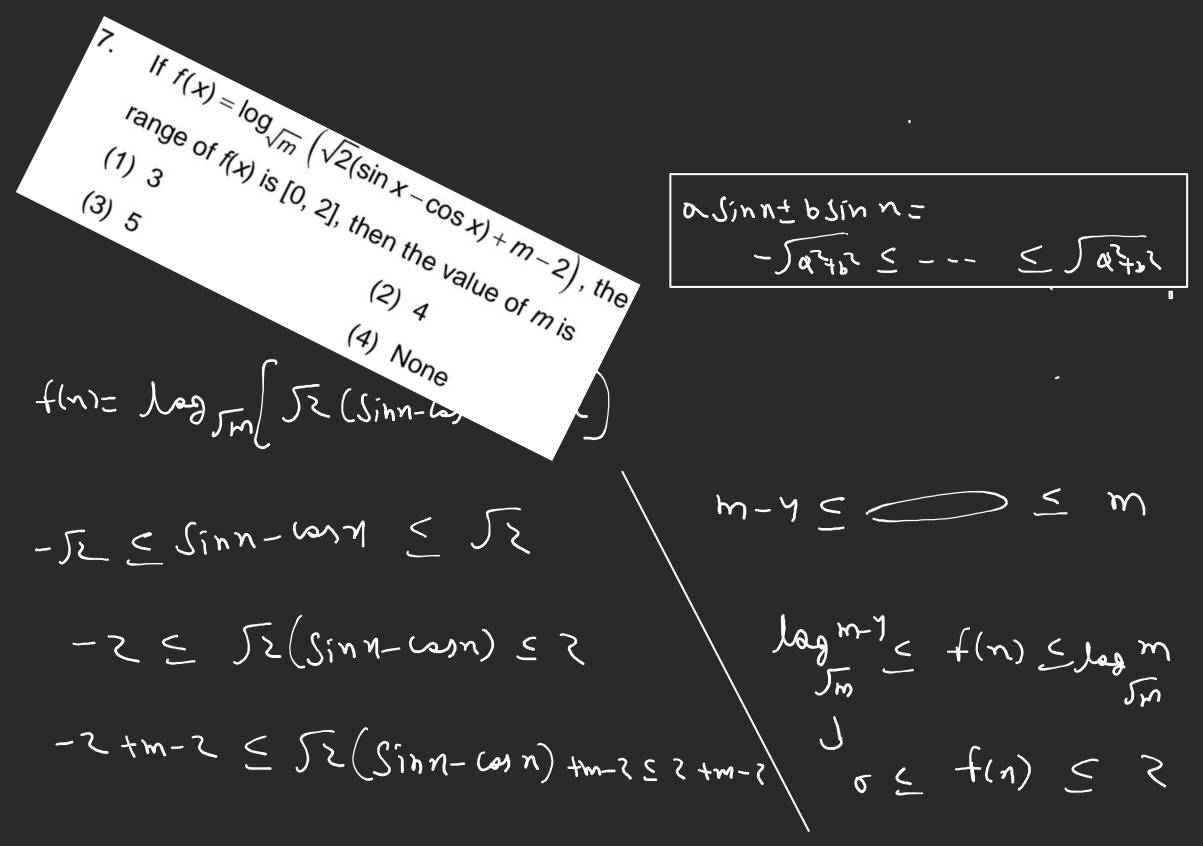 7. If f(x) = log√m (√2(sin x – cos x) + m – 2), the
range of f(x) is [0, 2], then the value of m is
(1) 3
(2) 4
(3) 5
(4) None
a sin n ± b sin n =
-√a²+b² ≤ --- ≤ √a²+b²
f(n) = log√m [ √2 (sin n -
-√2 ≤ sin n - cos n ≤ √2
-2 ≤ √2 (sin n - cos n) ≤ 2
-2 + m - 2 ≤ √2 (sin n - cos n) + m - 2 ≤ 2 + m - 2
m - 4 ≤ ≤ m
log√m m-4 ≤ f(n) ≤ log√m m
0 ≤ f(n) ≤ 2